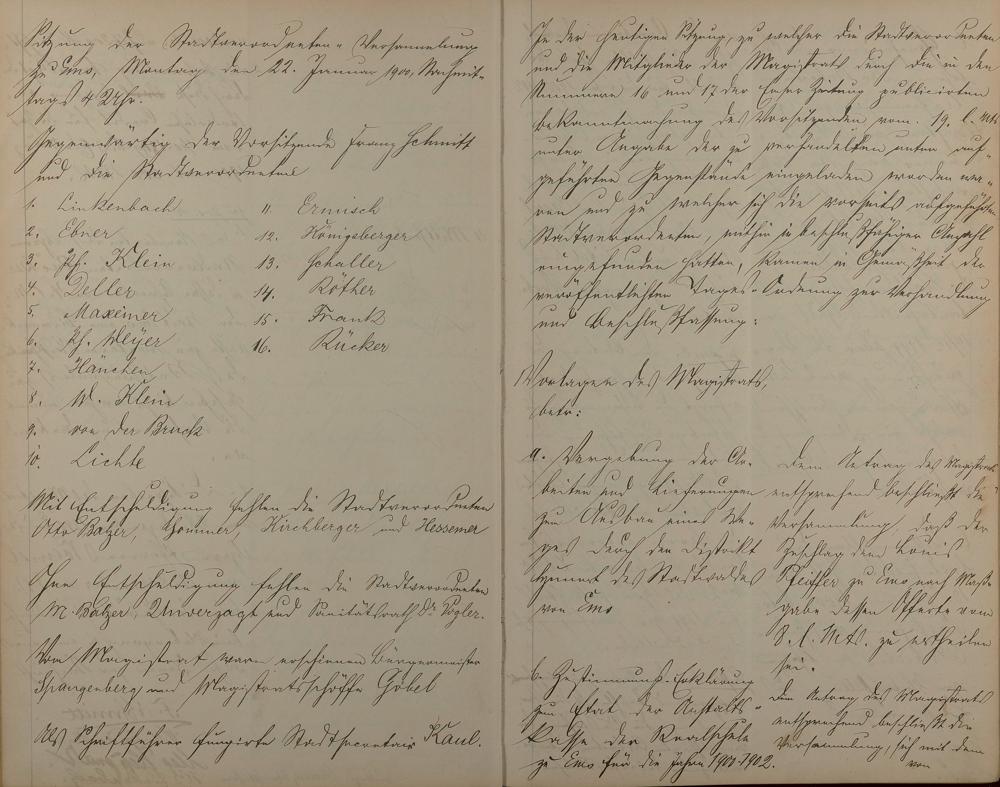 Sitzung der Stadtverordneten-Versammlung
zu Ems, Montag den 22. Januar 1900, Nachmit-
tags 4 Uhr.
Gegenwärtig der Vorsitzende Franz Schmitt
und die Stadtverordneten
1. Linkenbach
2. Ebner
3. Ph. Klein
4. Deller
5. Maxeiner
6. Ph. Meyer
7. Hänchen
8. W. Klein
9. von der Bruck
10. Lichte
11. Ermisch
12. Königsberger
13. Schaller
14. Röther
15. Frank
16. Rücker
Mit Entschuldigung fehlen die Stadtverordneten
Otto Balzer, Hommer, Kirchberger und Hessemer
Ohne Entschuldigung fehlen die Stadtverordneten
M. Balzer, Unverzagt und Sanitätsrath Dr. Vogler.
Vom Magistrat waren erschienen Bürgermeister
Spangenberg und Magistratsschöffe Göbel
Als Schriftführer fungirte Stadtsecretair Kaul.
In der heutigen Sitzung, zu welcher die Stadtverordneten
und die Mitglieder des Magistrats durch die in den
Nummern 16 und 17 der Emser Zeitung publicirten
Bekanntmachung des Vorsitzenden vom 19. l. Mts.
unter Angabe der zu verhandelten unten auf-
geführten Gegenstände eingeladen worden wa-
ren und zu welcher sich die vorseits aufgeführten
Stadtverordneten, mithin in beschlußfähiger Anzahl
eingefunden hatten, kamen in Gemäßheit der
veröffentlichten Tages-Ordnung zur Verhandlung
und Beschlußfassung:
Vorlagen des Magistrats,
betr:
a. Vergebung der Ar-
beiten und Lieferungen
zum Ausbau eines We-
ges durch den Distrikt
des Stadtwaldes
von Ems
Dem Antrag des Magistrats
entsprechend beschließt die
Versammlung, daß der
Zuschlag dem Louis
Pfeiffer zu Ems nach Maß-
gabe dessen Offerte vom
8. l. Mts. zu ertheilen
sei.
b. Zustimmungs-Erklärung
zum Etat der Anstalts-
kasse der Realschule
zu Ems für die Jahre 1900-1902.
Dem Antrag des Magistrats
entsprechend beschließt die
Versammlung, sich mit dem
von